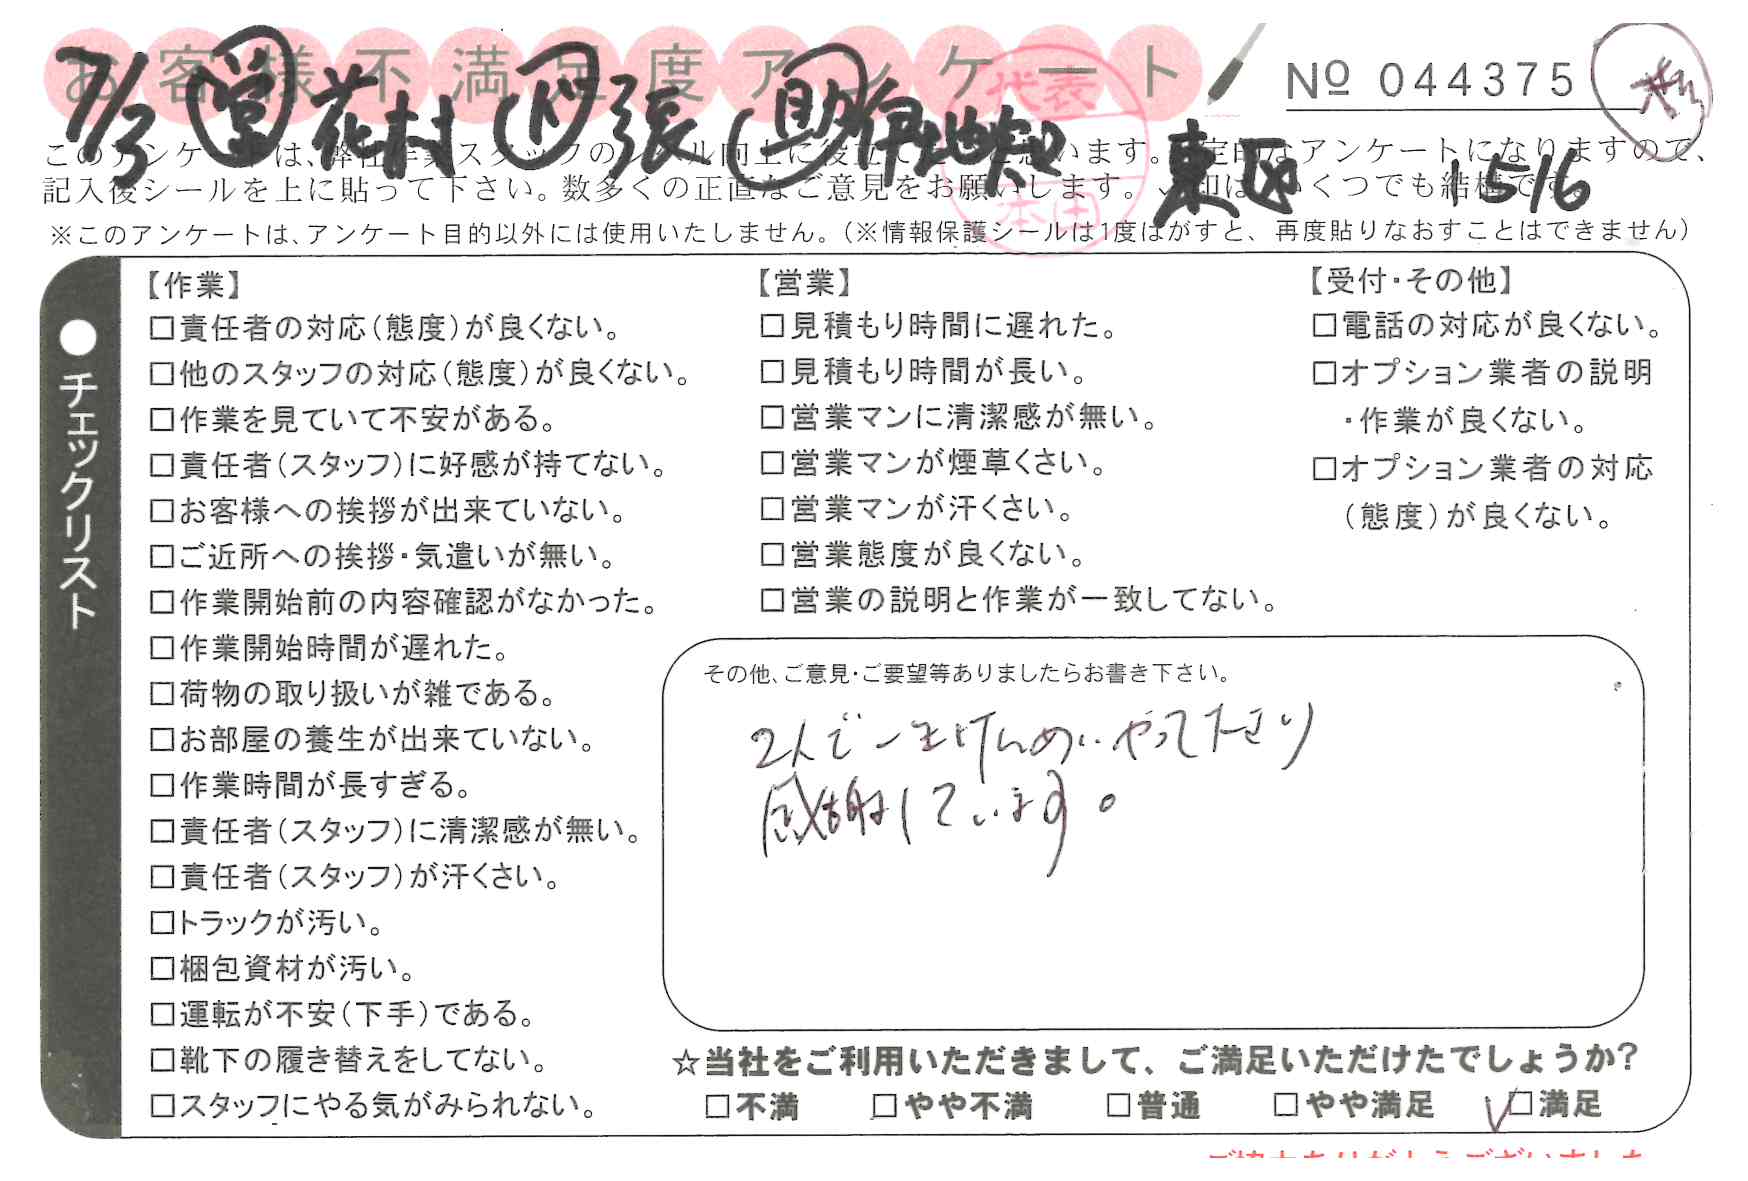 お客様不満足度アンケート
№ 044375
7/3 営 花村 下 張 助 伊地知 東迎 1516
代表
本田
このアンケートは、弊社作業スタッフのレベル向上に役立てたいと思います。否定的なアンケートになりますので、
記入後シールを上に貼って下さい。数多くの正直なご意見をお願いします。✓印はいくつでも結構です。
※このアンケートは、アンケート目的以外には使用いたしません。(※情報保護シールは1度はがすと、再度貼りなおすことはできません)
●チェックリスト
【作業】
□責任者の対応(態度)が良くない。
□他のスタッフの対応(態度)が良くない。
□作業を見ていて不安がある。
□責任者(スタッフ)に好感が持てない。
□お客様への挨拶が出来ていない。
□ご近所への挨拶・気遣いが無い。
□作業開始前の内容確認がなかった。
□作業開始時間が遅れた。
□荷物の取り扱いが雑である。
□お部屋の養生が出来ていない。
□作業時間が長すぎる。
□責任者(スタッフ)に清潔感が無い。
□責任者(スタッフ)が汗くさい。
□トラックが汚い。
□梱包資材が汚い。
□運転が不安(下手)である。
□靴下の履き替えをしてない。
□スタッフにやる気がみられない。
【営業】
□見積もり時間に遅れた。
□見積もり時間が長い。
□営業マンに清潔感が無い。
□営業マンが煙草くさい。
□営業マンが汗くさい。
□営業態度が良くない。
□営業の説明と作業が一致してない。
【受付・その他】
□電話の対応が良くない。
□オプション業者の説明
・作業が良くない。
□オプション業者の対応
(態度)が良くない。
その他、ご意見・ご要望等ありましたらお書き下さい。
2人で一生けんめいやって下さり
感謝しています。
☆当社をご利用いただきまして、ご満足いただけたでしょうか?
□不満 □やや不満 □普通 □やや満足 ✓□満足
ご協力ありがとうございました